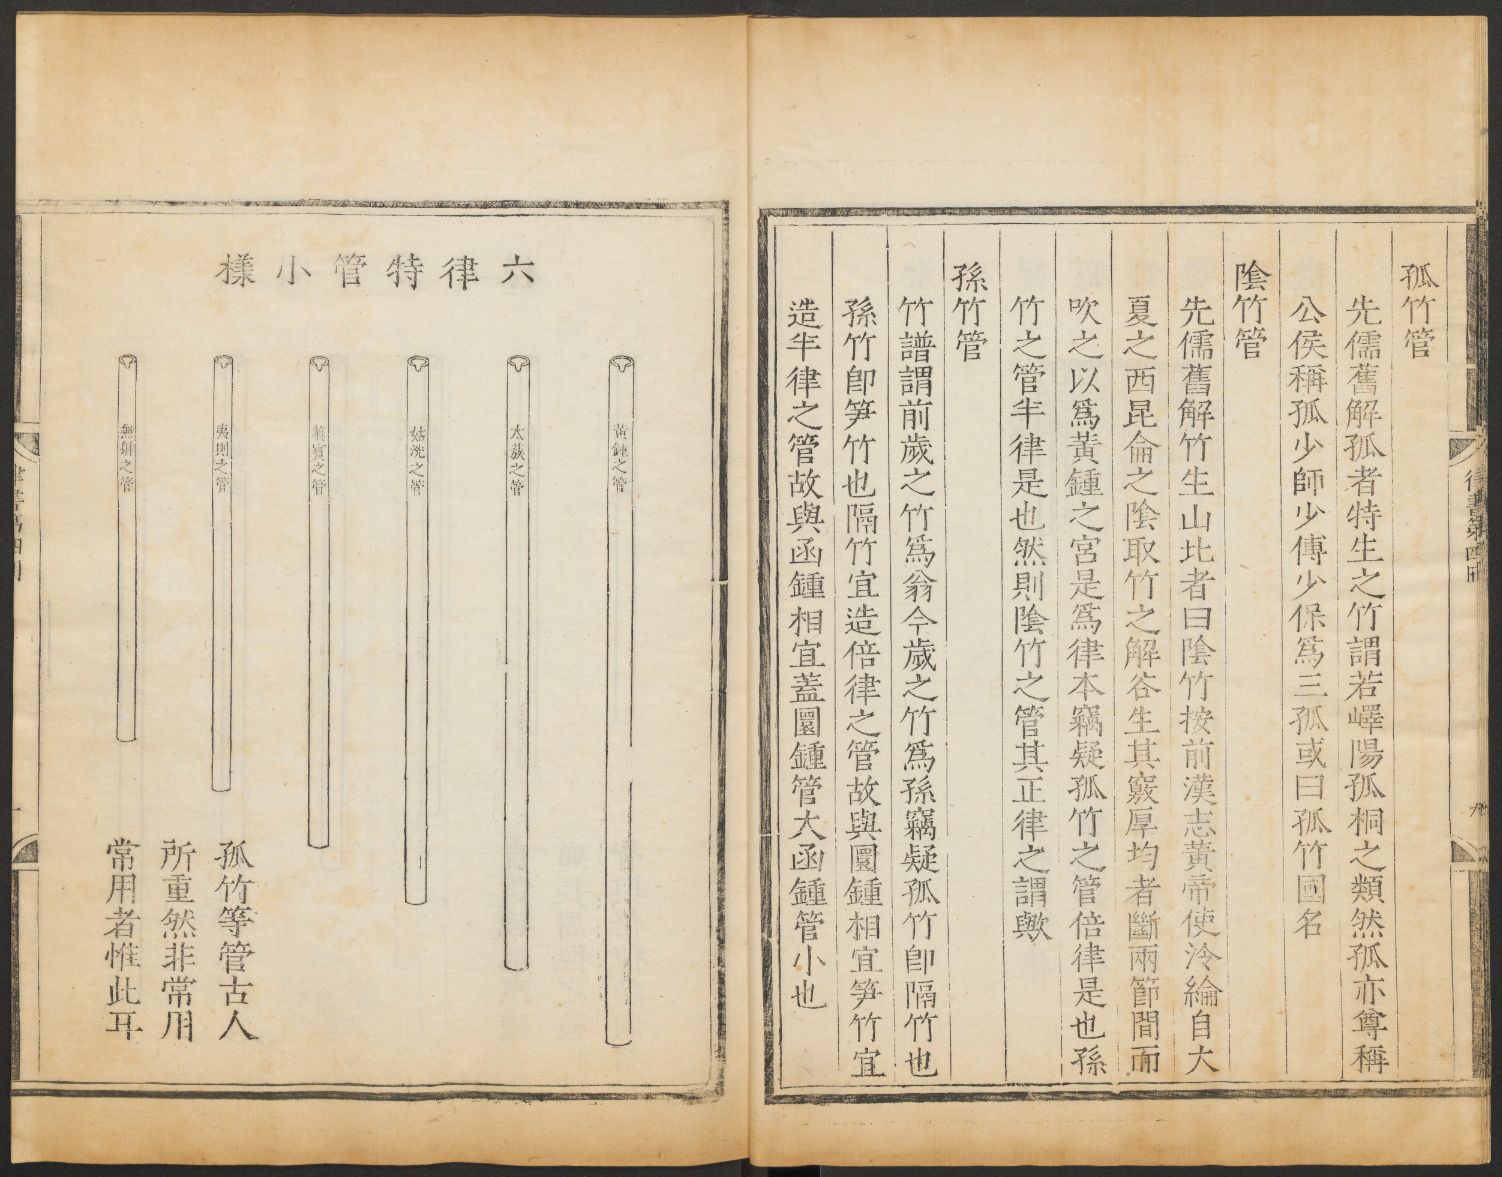 孤竹管
先儒舊解孤者特生之竹謂若嶧陽孤桐之類然孤亦尊稱
公侯稱孤少師少傅少保爲三孤或曰孤竹國名
隂竹管
先儒舊解竹生山北者曰隂竹按前漢志黃帝使泠綸自大
夏之西昆侖之隂取竹之解谷生其竅厚均者斷兩節間而
吹之以爲黃鍾之宮是爲律本竊疑孤竹之管倍律是也孫
竹之管半律是也然則隂竹之管其正律之謂歟
孫竹管
竹譜謂前歲之竹爲翁今歲之竹爲孫竊疑孤竹卽隔竹也
孫竹卽笋竹也隔竹宜造倍律之管故與圜鍾相宜笋竹宜
造半律之管故與函鍾相宜蓋圜鍾管大函鍾管小也
六律特管小樣
黃鍾之管
太蔟之管
姑洗之管
蕤賓之管
夷則之管
無射之管
孤竹等管古人
所重然非常用
常用者惟此耳